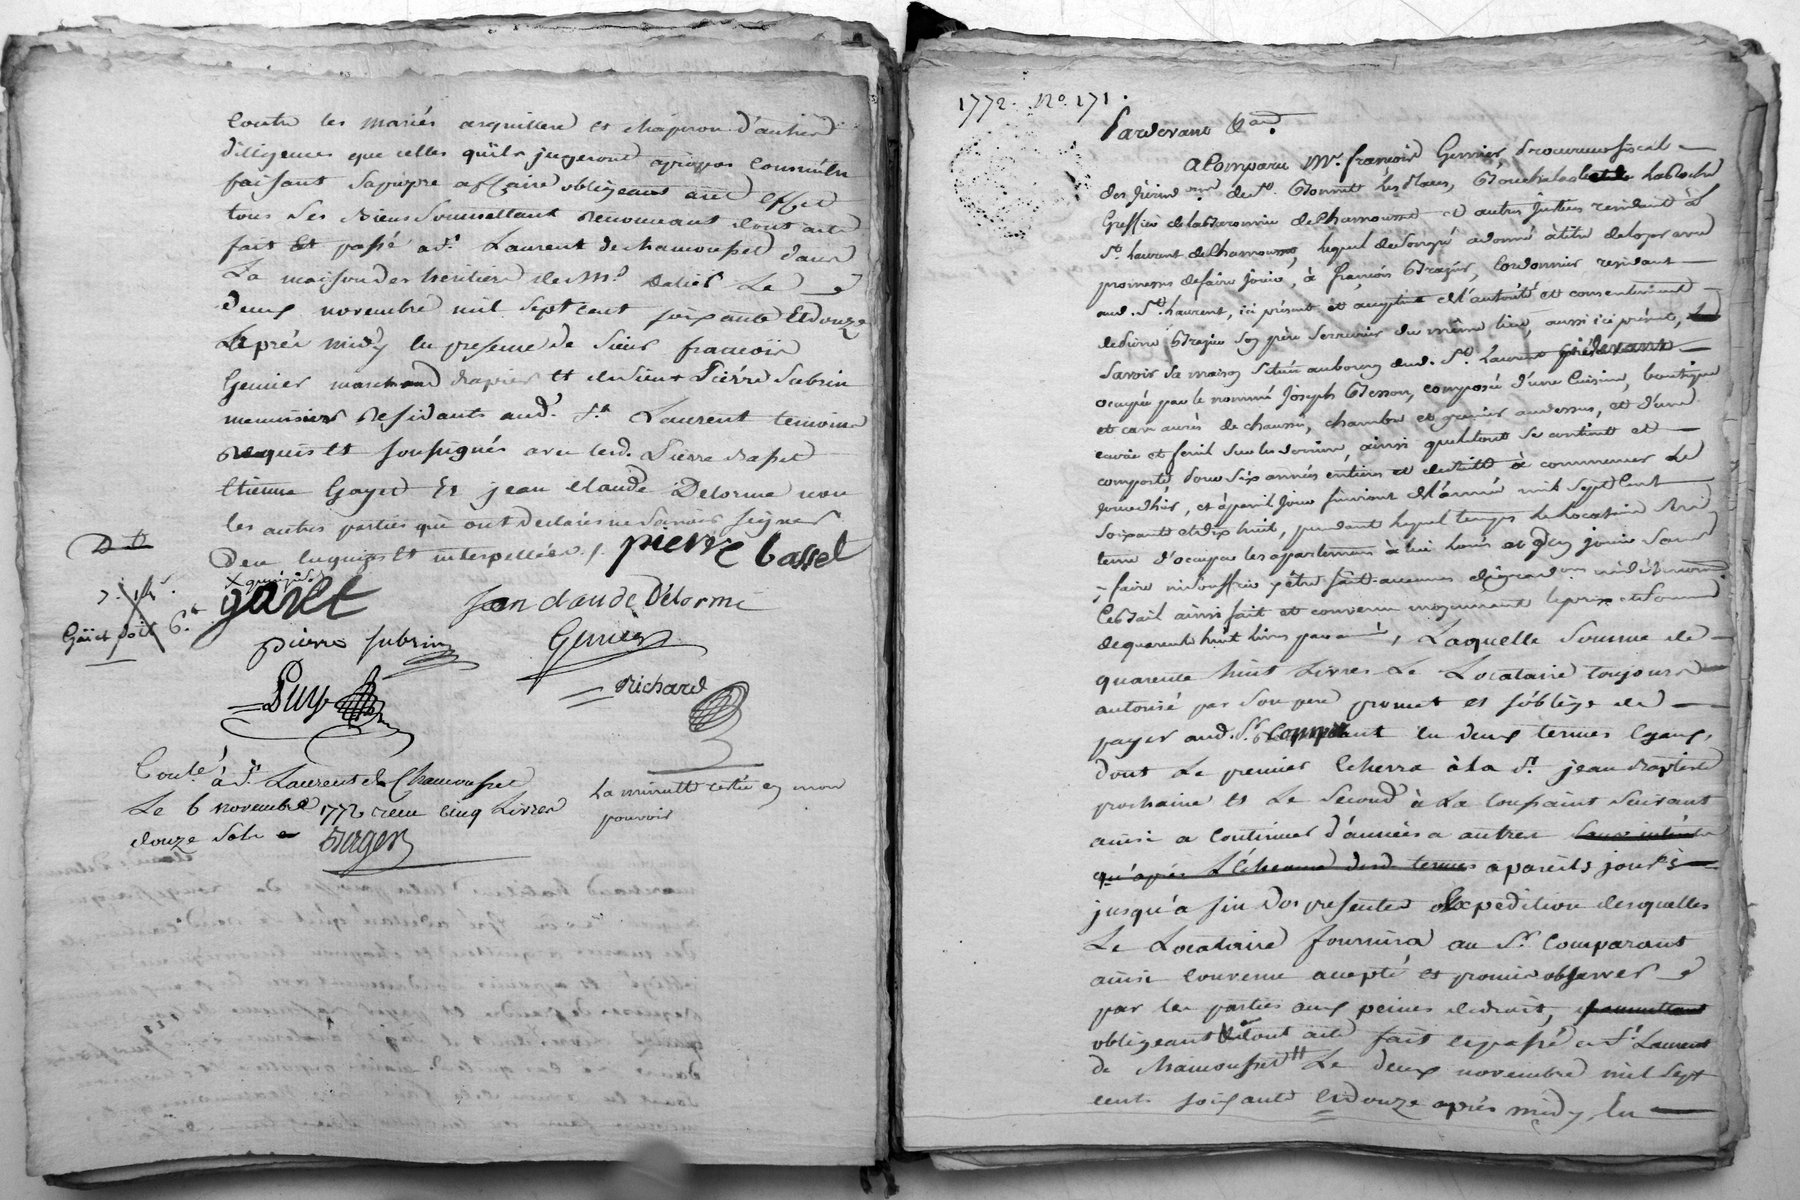 Contre les mariés arquillere et chapiron d'autres
diligences que celles qu'ils jugeront apropos Comme
faisant sa propre affaire obligeant a cet effet
tous Ses biens Soumettant Renonceant dont acte
fait et passé a St. Laurent de chamousset dans
La maison des heritiers de Mr. Le
deux novembre mil sept cent soixante Et douze
Après midy En presence de sieur françois
Genier marchand drapier et du sieur Pierre Subrin
menuisier Residants aud. St. Laurent temoins
Requis Et soussignés avec led. Pierre basset
Etienne Gayet Et jean claude Delorme non
les autres parties qui ont declaré ne Savoir signer
De ce enquises Et interpellées ./. pierre bassel
gaiet
jean claude Delorme
pierre subrin
Genier
Puy
Richard
Conté. à St. Laurent de Chamousset
Le 6 novembre 1772 recu cinq Livres
douze sols
La minutte restée en mon
pouvoir
1772. No. 171.
Pardevant &c.
a Comparu Mr. françois Genier, procureur fiscal
des de St. Bonnet les places, Labroche
Greffier de la Baronnie de Chamousset et autres justices résident à
St. Laurent de Chamousset, lequel de son gré a donné à titre de loyer avec
promesse de faire jouir, à françois Brazier, Cordonnier résidant
aud. St. Laurent, ici présent et acceptant de l'autorité et consentement
de Brazier son père Serrurier du même lieu, aussi ici présent,
Savoir Sa maison située au bourg dud. St. Laurent
ocupée par le nommé Joseph Besson, composée d'une Cuisine, boutique
et cave aurès de chaussé, chambre et grenier audessus, et d'une
et fenil Sur le derrière, ainsi que le tout Se contient et
comporte, pour Six années entieres et de suitte à commencer de
jourd'hui, et à pareil jour finiront de l'année mil Sept Cent
Soixante et dix huit, pendant lequel temps le Locataire Sera
tenu d'ocuper les apartemens à lui loués et d'en jouir sans
y faire ni souffrir être fait aucunes dégradons.
Ce bail ainsi fait et convenu moyennant le prix et Somme
de quarente huit livres par année, Laquelle Somme de
quarente huit Livres Le Locataire toujours
autorisé par Son pere promet et s'oblige de
payer aud. Sr. Comparant en deux termes Egaux,
dont Le premier Echerra à la St. jean Baptiste
prochaine et Le Second à La toussaint Suivant
ainsi a Continuer d'années a autres
qu'apres L'écheance desd. termes a pareils jours
jusqu'a fin Des presentes Expedition desquelles
Le Locataire fournira au Sr. Comparant
ainsi Convenu accepté et promis observer
par les parties aux peines de droit,
obligeant dont acte fait et passé a St. Laurent
de Chamousset Le deux novembre mil Sept
cent soixante Et douze après midy, En